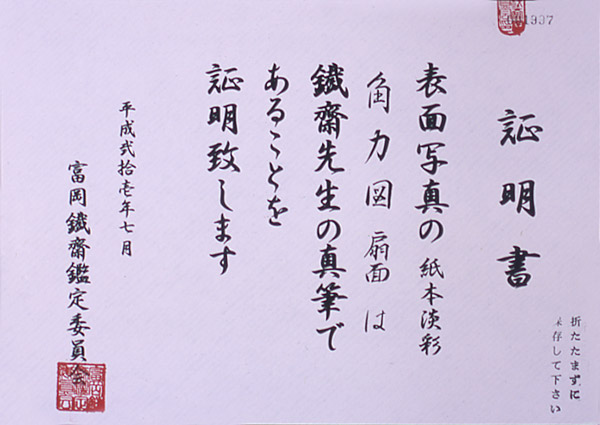 001937
証明書
表面写真の紙本淡彩
角力図扇面は
鐵齋先生の真筆で
あることを
証明致します
平成弐拾壱年七月
富岡鐵齋鑑定委員会
折たたまずに
保存して下さい